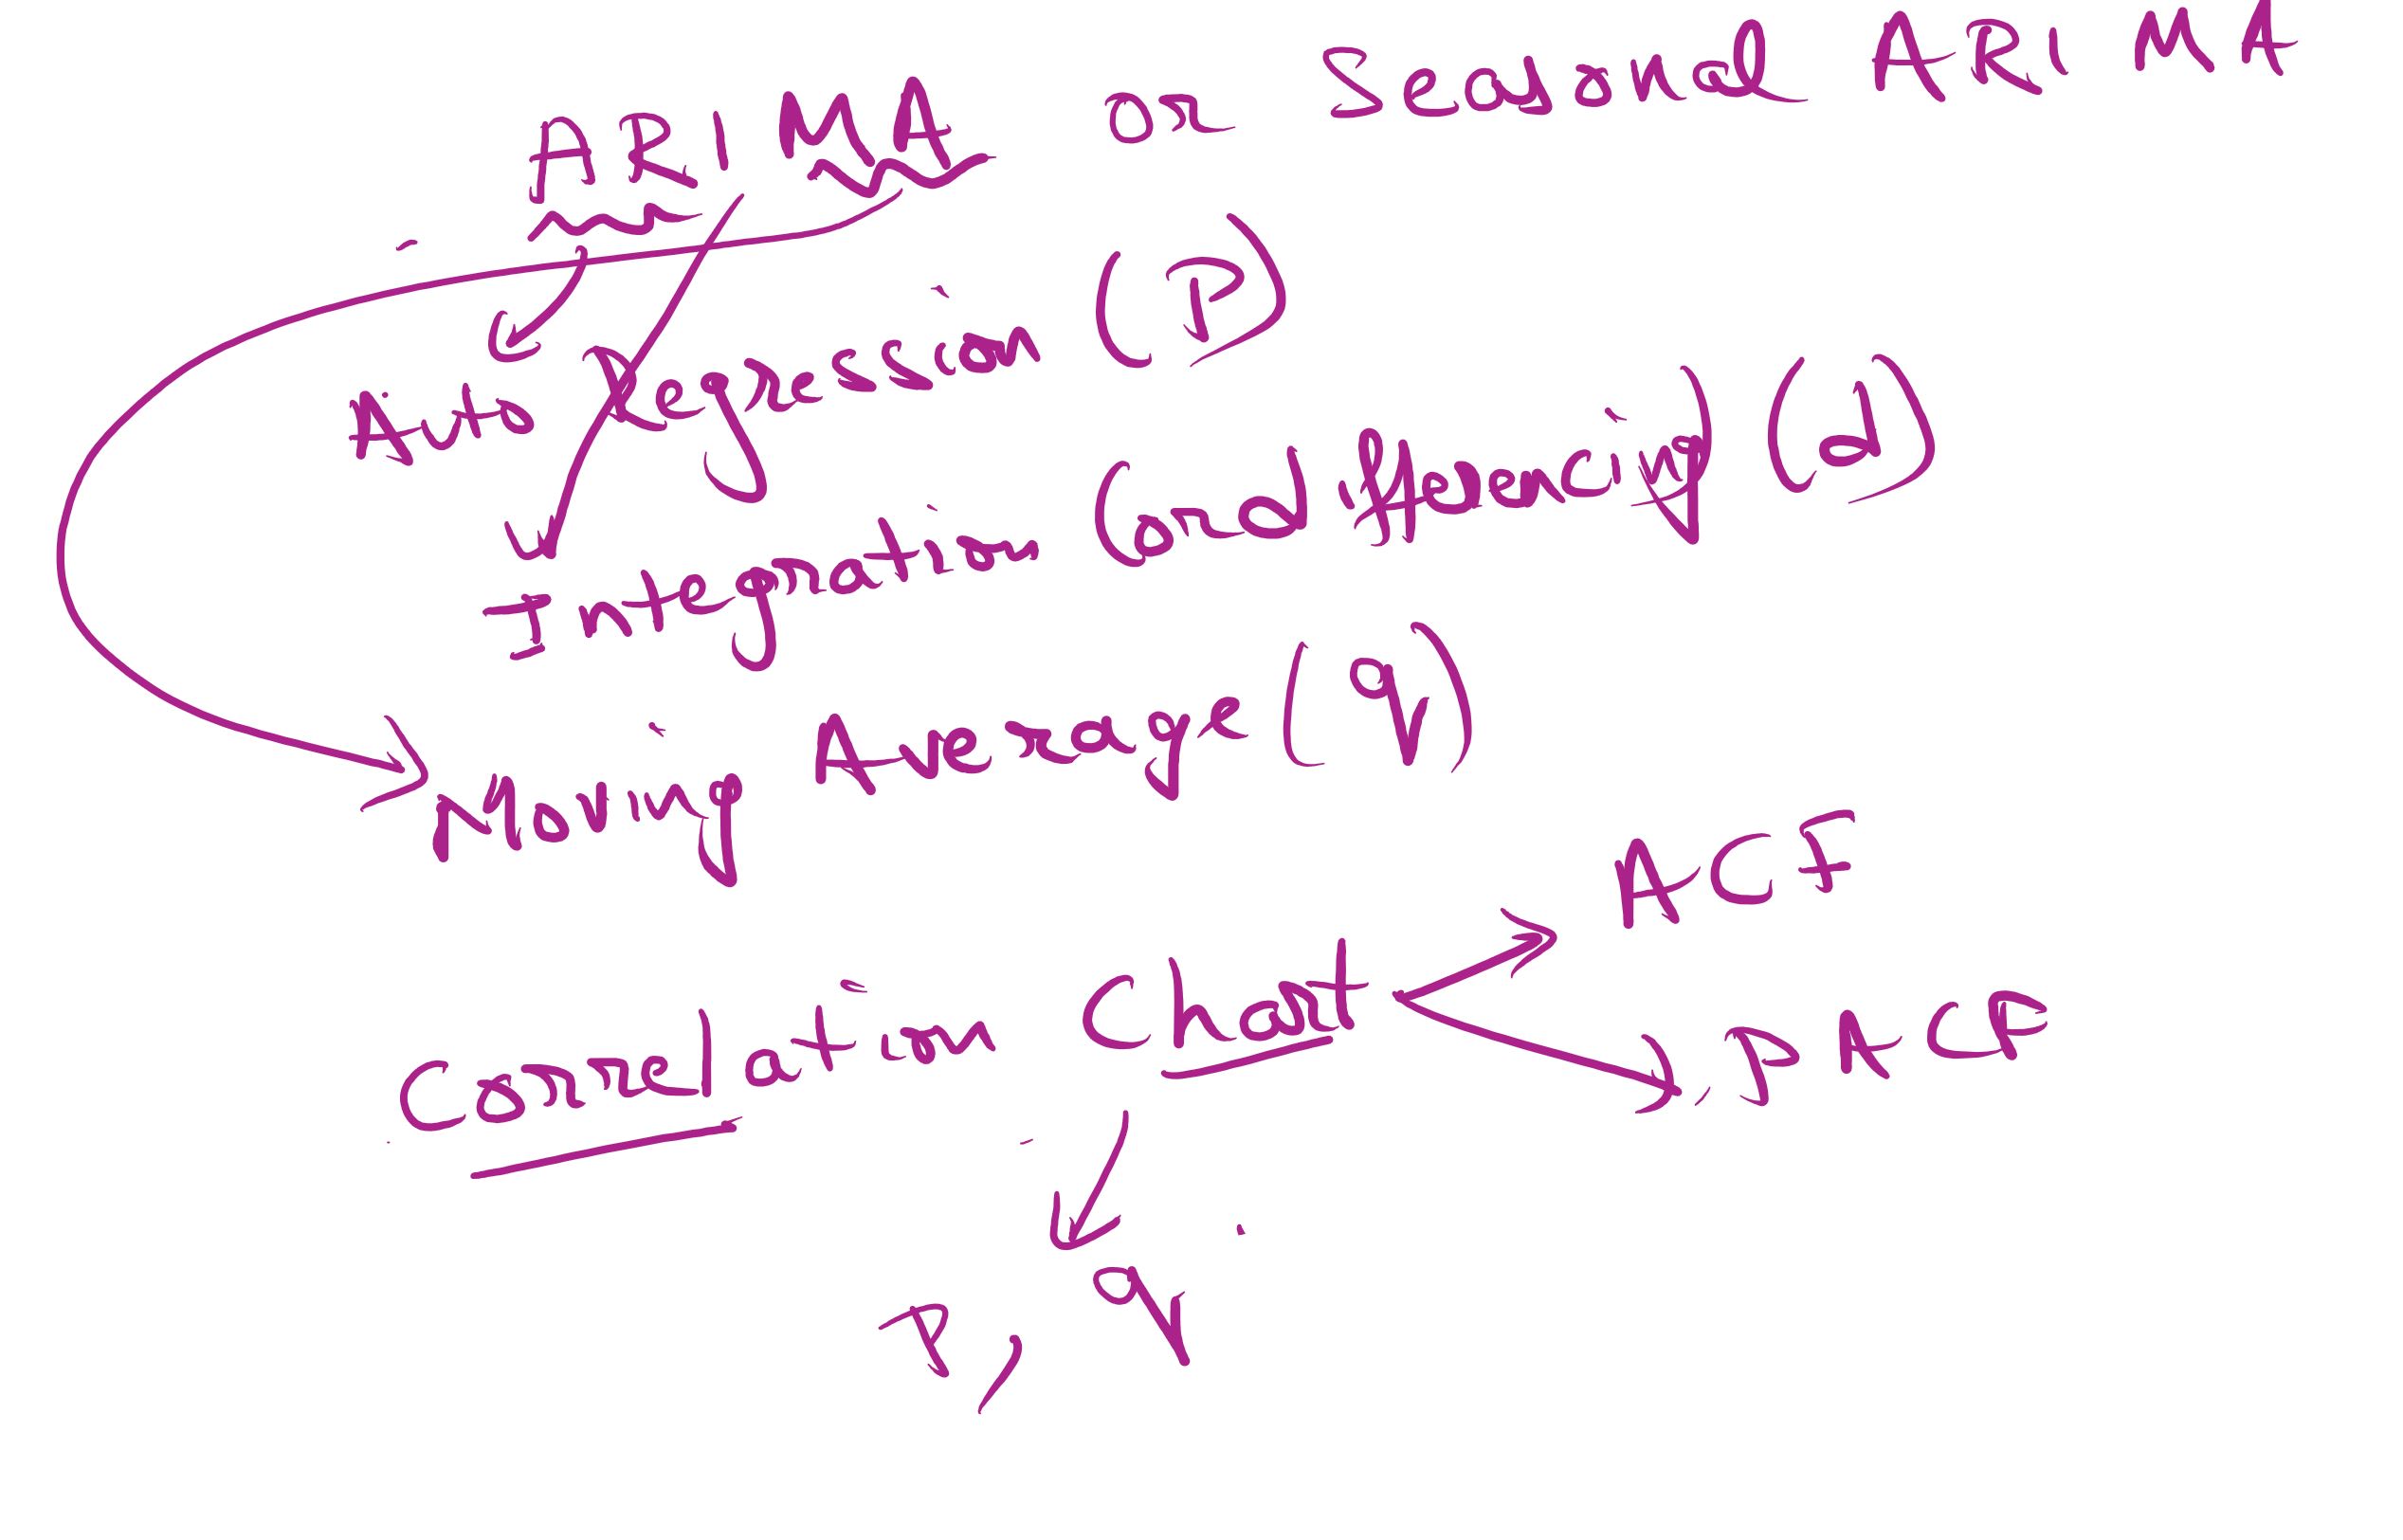 ARIMA or Seasonal ARIMA
Auto Regression (P)
Integration (ord differencing) (d)
Moving Average (q)
Correlation Chart
ACF
PACF
P, q